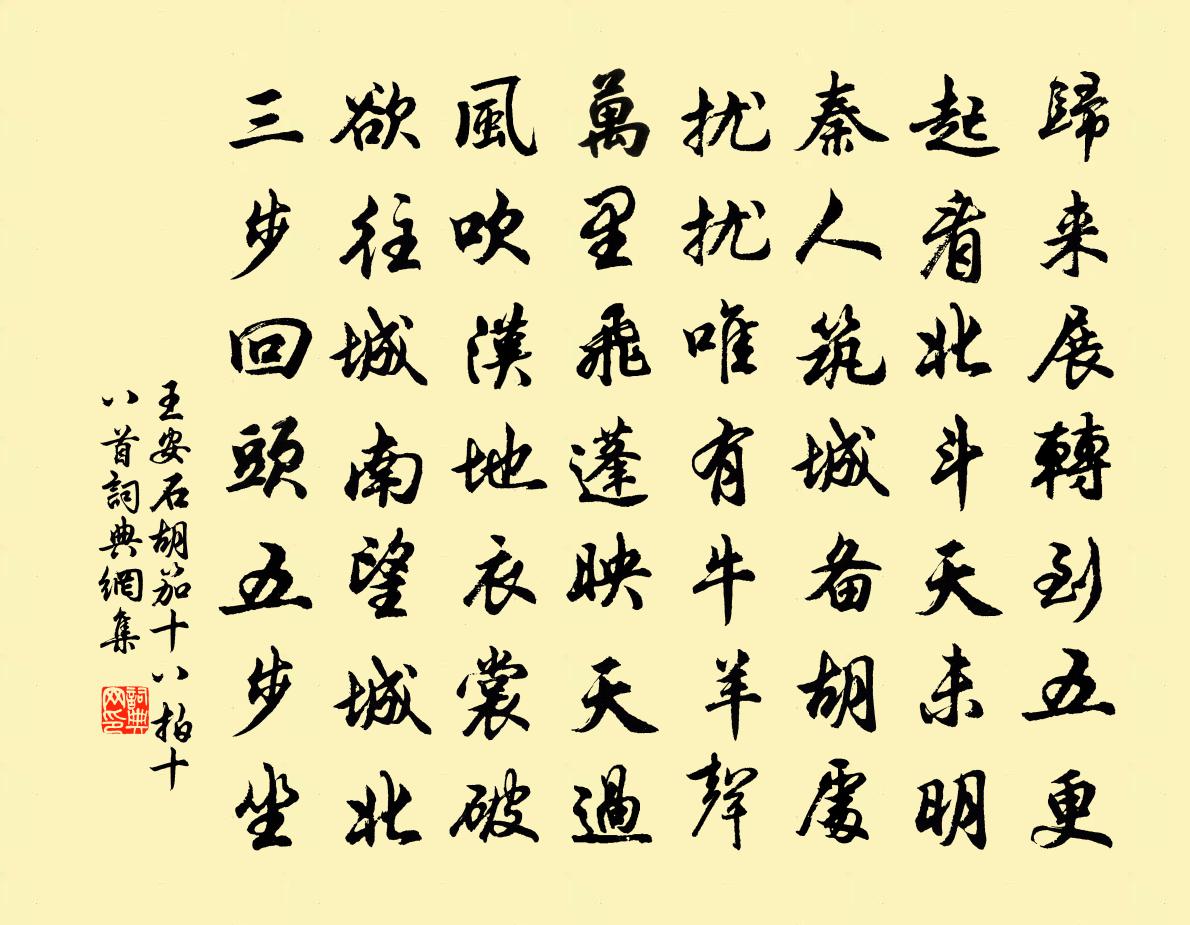 歸来展轉到五更
起看北斗天未明
秦人筑城备胡處
扰扰唯有牛羊聲
萬里飛蓬映天過
風吹漢地衣裳破
欲往城南望城北
三步回頭五步坐
王安石胡笳十八拍十
八首詞典網集
詞典网印